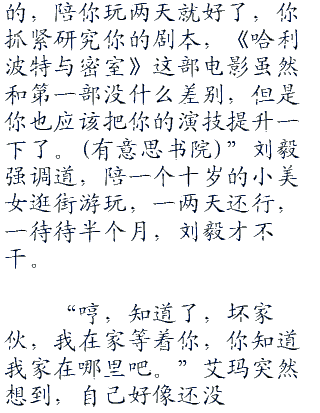 的，陪你玩两天就好了，你
抓紧研究你的剧本，《哈利
波特与密室》这部电影虽然
和第一部没什么差别，但是
你也应该把你的演技提升一
下了。(有意思书院)”刘毅
强调道，陪一个十岁的小美
女逛街游玩，一两天还行，
一待待半个月，刘毅才不
干。
“哼，知道了，坏家
伙，我在家等着你，你知道
我家在哪里吧。”艾玛突然
想到，自己好像还没